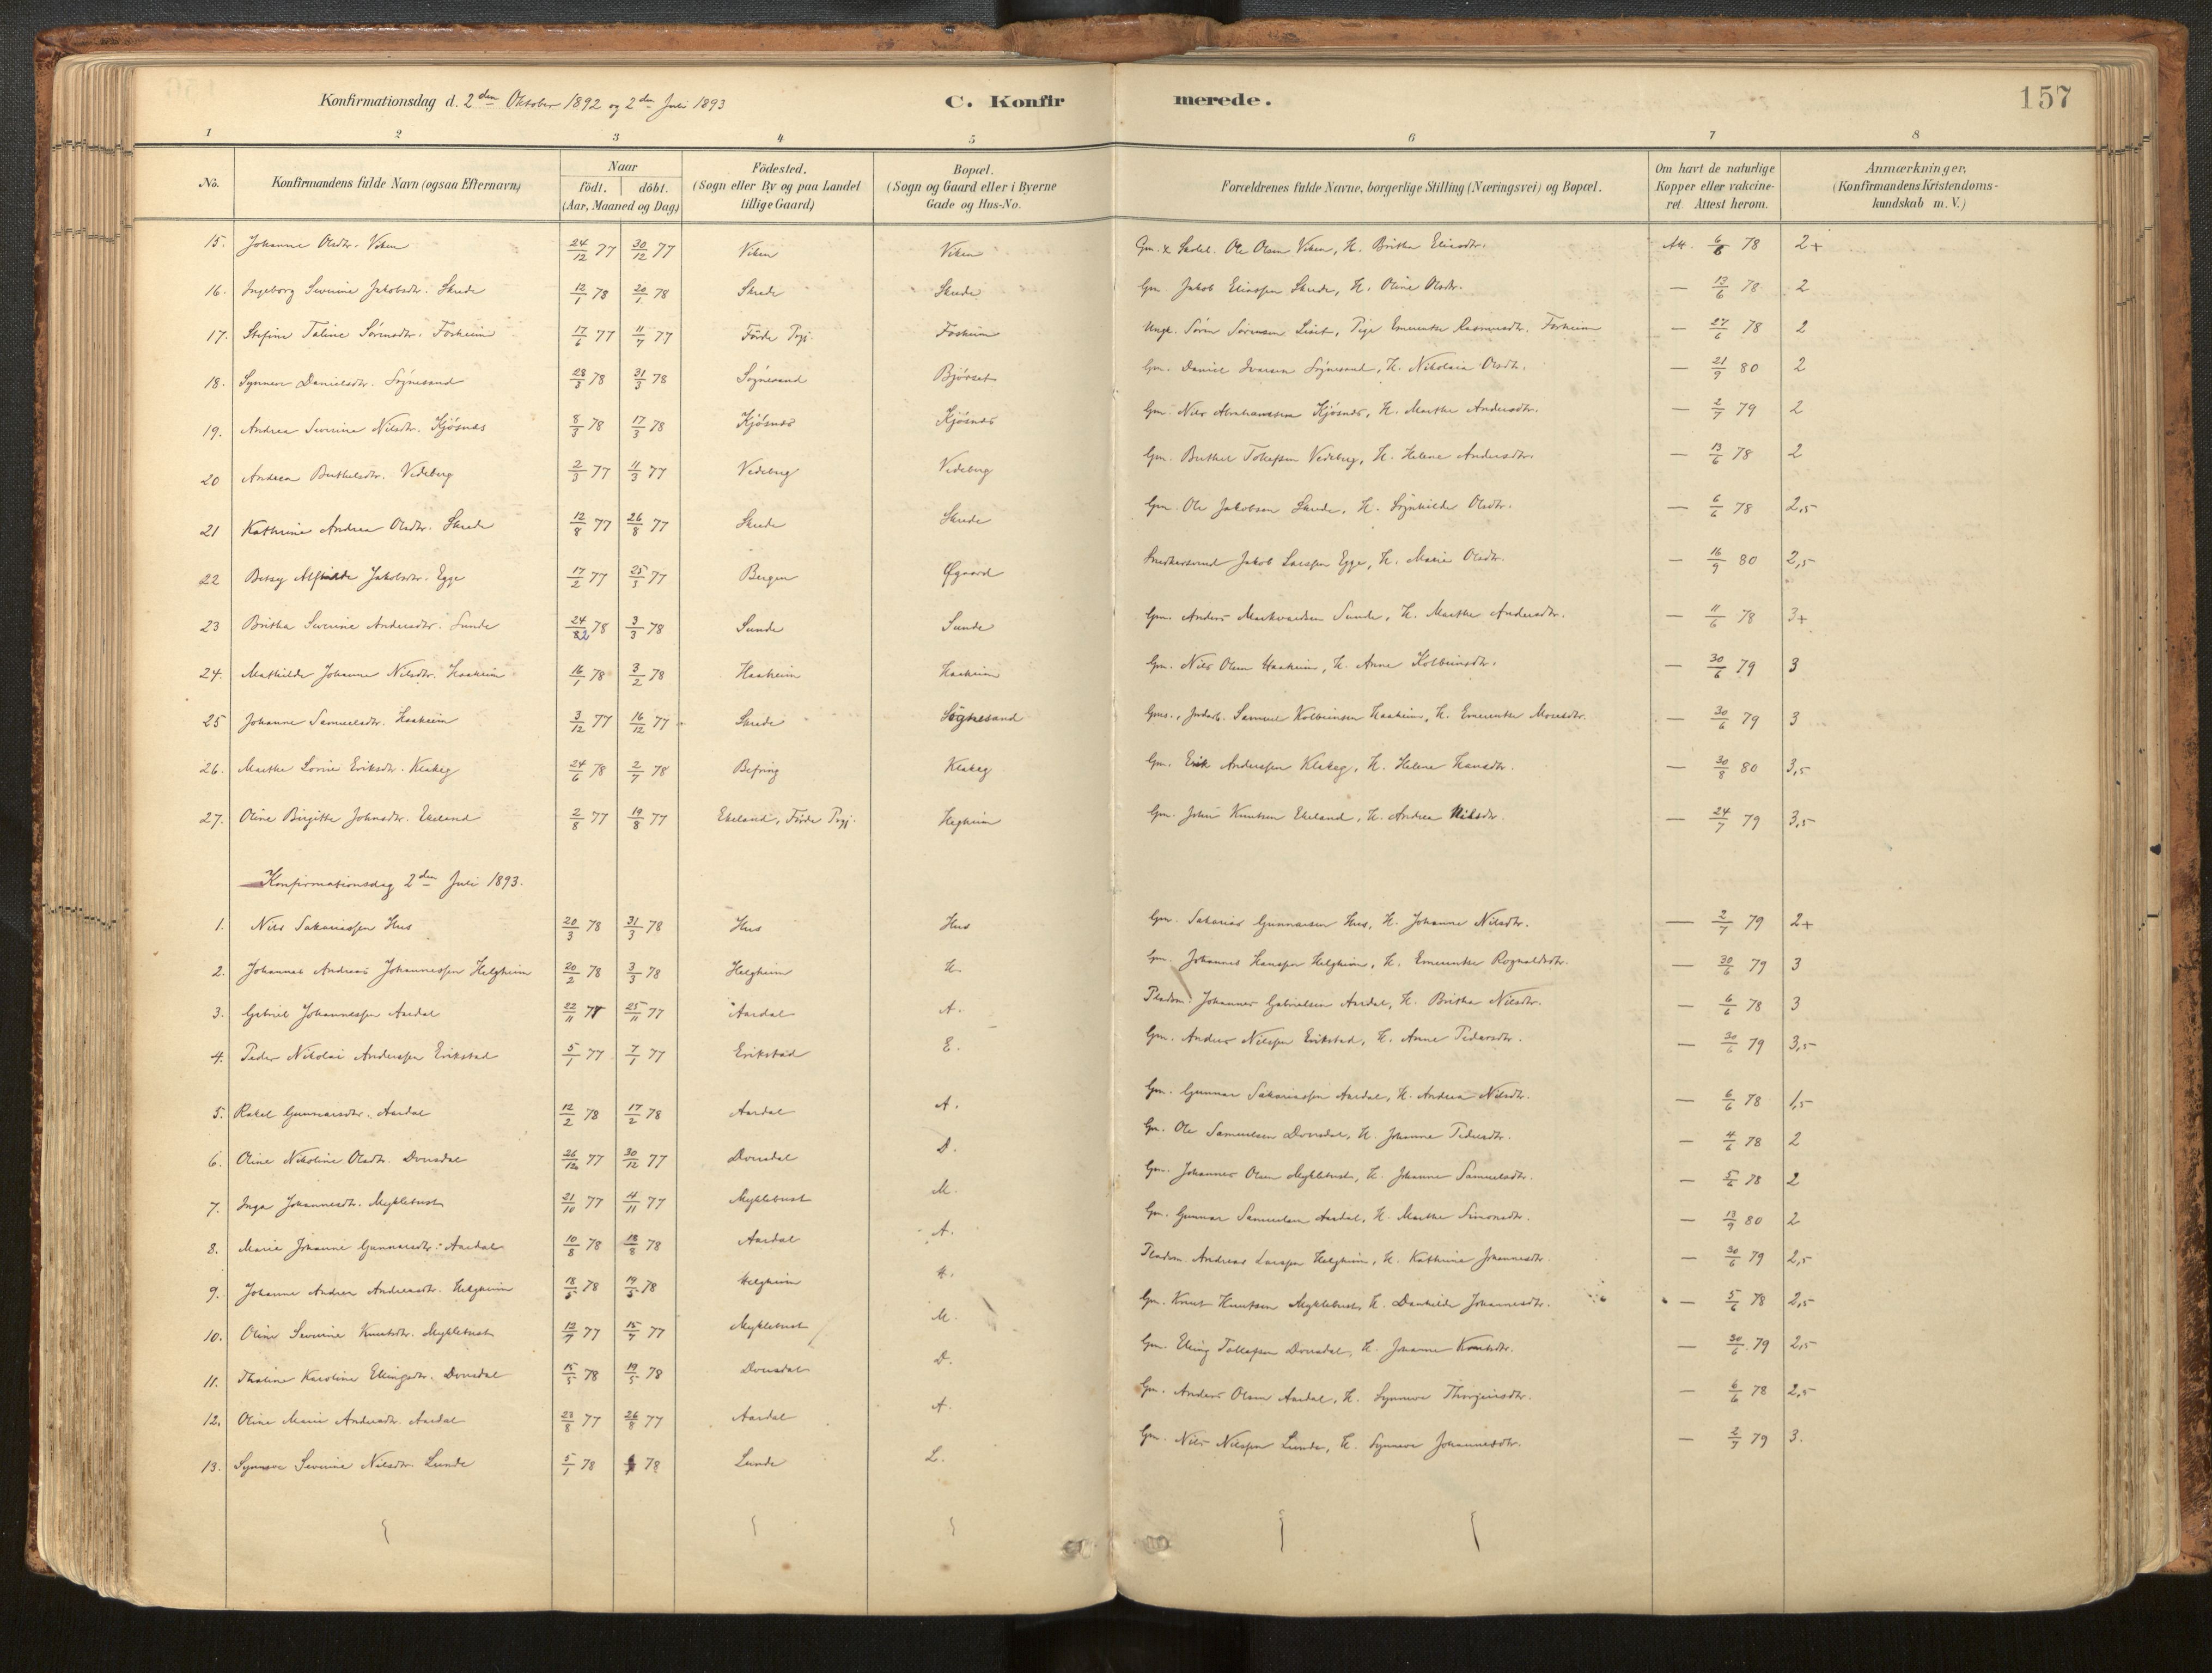 Konfirmationsdag d. 2den Oktober 1892 og 2den Juli 1893 C. Konfirmerede. 157
1 2 3 4 5 6 7 8
No. Konfirmandens fulde Navn (ogsaa Efternavn) Naar födt. döbt. (Aar, Maaned og Dag) Födested. (Sogn eller By og paa Landet tillige Gaard) Bopæl. (Sogn og Gaard eller i Byerne Gade og Hus-No. Forældrenes fulde Navne, borgerlige Stilling (Næringsvei) og Bopæl. Om havt de naturlige Kopper eller vakcineret. Attest herom. Anmærkninger. (Konfirmandens Kristendomskundskab m. V.)
15. Johanne Olsdtr. Viken 24/12 77 30/12 77 Viken Viken Gm. & Skolel. Ole Olsen Viken, H. Britha Eliasdtr. Att. 6/6 78 2+
16. Ingeborg Severine Jakobsdtr. Skrede 12/1 78 20/1 78 Skrede Skrede Gm. Jakob Eliassen Skrede, H. Oline Olsdtr. — 13/6 78 2
17. Stefine Taline Sörensdtr. Fosheim 17/6 77 11/7 77 Förde Prgj. Fosheim Ungk. Sören Sörensen Liset, Pige Emerentse Rasmusdtr. Fosheim — 27/6 78 2
18. Synneve Danielsdtr. Sögnesand 28/3 78 31/3 78 Sögnesand Björset Gm. Daniel Ivarsen Sögnesand, H. Nikolaia Olsdtr. — 21/9 80 2
19. Andrea Severine Nilsdtr. Kjösnæs 8/3 78 17/3 78 Kjösnæs Kjösnæs Gm. Nils Abrahamsen Kjösnæs, H. Marthe Andersdtr. — 2/7 79 2
20 Andrea Berthelsdtr. Vedeberg 2/3 77 11/3 77 Vedeberg Vedeberg Gm. Berthel Tollefsen Vedeberg, H. Helene Andersdtr. — 13/6 78 2
21 Kathrine Andrea Olsdtr. Skrede 12/8 77 26/8 77 Skrede Skrede Gm. Ole Jakobsen Skrede, H. Sögnhilde Olsdtr. — 6/6 78 2,5
22 Betsy Alfhilde Jakobsdtr. Egge 17/2 77 25/3 77 Bergen Øgaard Snedkersvend Jakob Larssen Egge, H. Marie Olsdtr. — 16/9 80 2,5
23 Britha Severine Andersdtr. Sunde 24/2 78 3/3 78 Sunde Sunde Gm. Anders Markvardsen Sunde, H. Marthe Andersdtr. — 11/6 78 3+
24. Mathilde Johanne Nilsdtr. Haaheim 16/1 78 3/2 78 Haaheim Haaheim Gm. Nils Olsen Haaheim, H. Anne Kolbeinsdtr. — 30/6 79 3
25 Johanne Samuelsdtr. Haaheim 3/12 77 16/12 77 Skrede Sögnesand Gms., Inderb. Samuel Kolbeinsen Haaheim, H. Emerentse Mosesdtr. — 30/6 79 3
26. Marthe Lovise Eriksdtr. Klakeg 24/6 78 2/7 78 Befring Klakeg Gm. Erik Andersen Klakeg, H. Helene Hansdtr. — 30/8 80 3,5
27. Oline Birgitte Johnsdtr. Ekeland 2/8 77 19/8 77 Ekeland, Förde Prgj. Hegheim Gm. John Knutsen Ekeland, H. Andrea Nilsdtr. — 24/7 79 3,5
Konfirmationsdag 2den Juli 1893.
1. Nils Sakariassen Hus 20/3 78 31/3 78 Hus Hus Gm. Sakarias Gunnarsen Hus, H. Johanne Nilsdtr. — 2/7 79 2+
2. Johannes Andreas Johannessen Helgheim 20/2 78 3/3 78 Helgheim H. Gm. Johannes Hanssen Helgheim, H. Emerentse Rognaldsdtr. — 30/6 79 3
3. Gabriel Johannessen Aardal 22/11 77 25/11 77 Aardal A. Pladsm. Johannes Gabrielsen Aardal, H. Britha Nilsdtr. — 6/6 78 3
4. Peder Nikolai Andersen Erikstad 5/1 77 7/1 77 Erikstad E. Gm. Anders Nilssen Erikstad, H. Anne Pedersdtr. — 30/6 79 3,5
5. Rakel Gunnarsdtr. Aardal 12/2 78 17/2 78 Aardal A. Gm. Gunnar Sakariassen Aardal, H. Andrea Nilsdtr. — 6/6 78 1,5
6. Oline Nikoline Olsdtr. Dvergsdal 26/12 77 30/12 77 Dvergsdal D. Gm. Ole Samuelsen Dvergsdal, H. Johanne Pedersdtr. — 4/6 78 2
7. Inga Johannesdtr. Myklebust 21/10 77 4/11 77 Myklebust M. Gm. Johannes Olsen Myklebust, H. Johanne Samuelsdtr. — 5/6 78 2
8. Marie Johanne Gunnarsdtr. Aardal 10/8 78 18/8 78 Aardal A. Gm. Gunnar Samuelsen Aardal, H. Marthe Simonsdtr. — 13/9 80 2
9. Johanne Andrea Andreasdtr. Helgheim 18/5 78 19/5 78 Helgheim H. Pladsm. Andreas Larssen Helgheim, H. Kathrine Johannesdtr. — 30/6 79 2,5
10. Oline Severine Knutsdtr. Myklebust 12/7 77 15/7 77 Myklebust M. Gm. Knut Knutsen Myklebust, H. Dankilde Johannesdtr. — 5/6 78 2,5
11. Thaline Karoline Ellingsdtr. Dvergsdal 15/5 78 19/5 78 Dvergsdal D. Gm. Elling Tollefsen Dvergsdal, H. Johanne Knutsdtr. — 30/6 79 2,5
12. Oline Marie Andersdtr. Aardal 23/8 77 26/8 77 Aardal A. Gm. Anders Olsen Aardal, H. Synneve Thorgeirsdtr. — 6/6 78 2,5
13. Synneve Severine Nilsdtr. Lunde 5/1 78 78 Lunde L. Gm. Nils Nilssen Lunde, H. Synneve Johannesdtr. — 2/7 79 3.